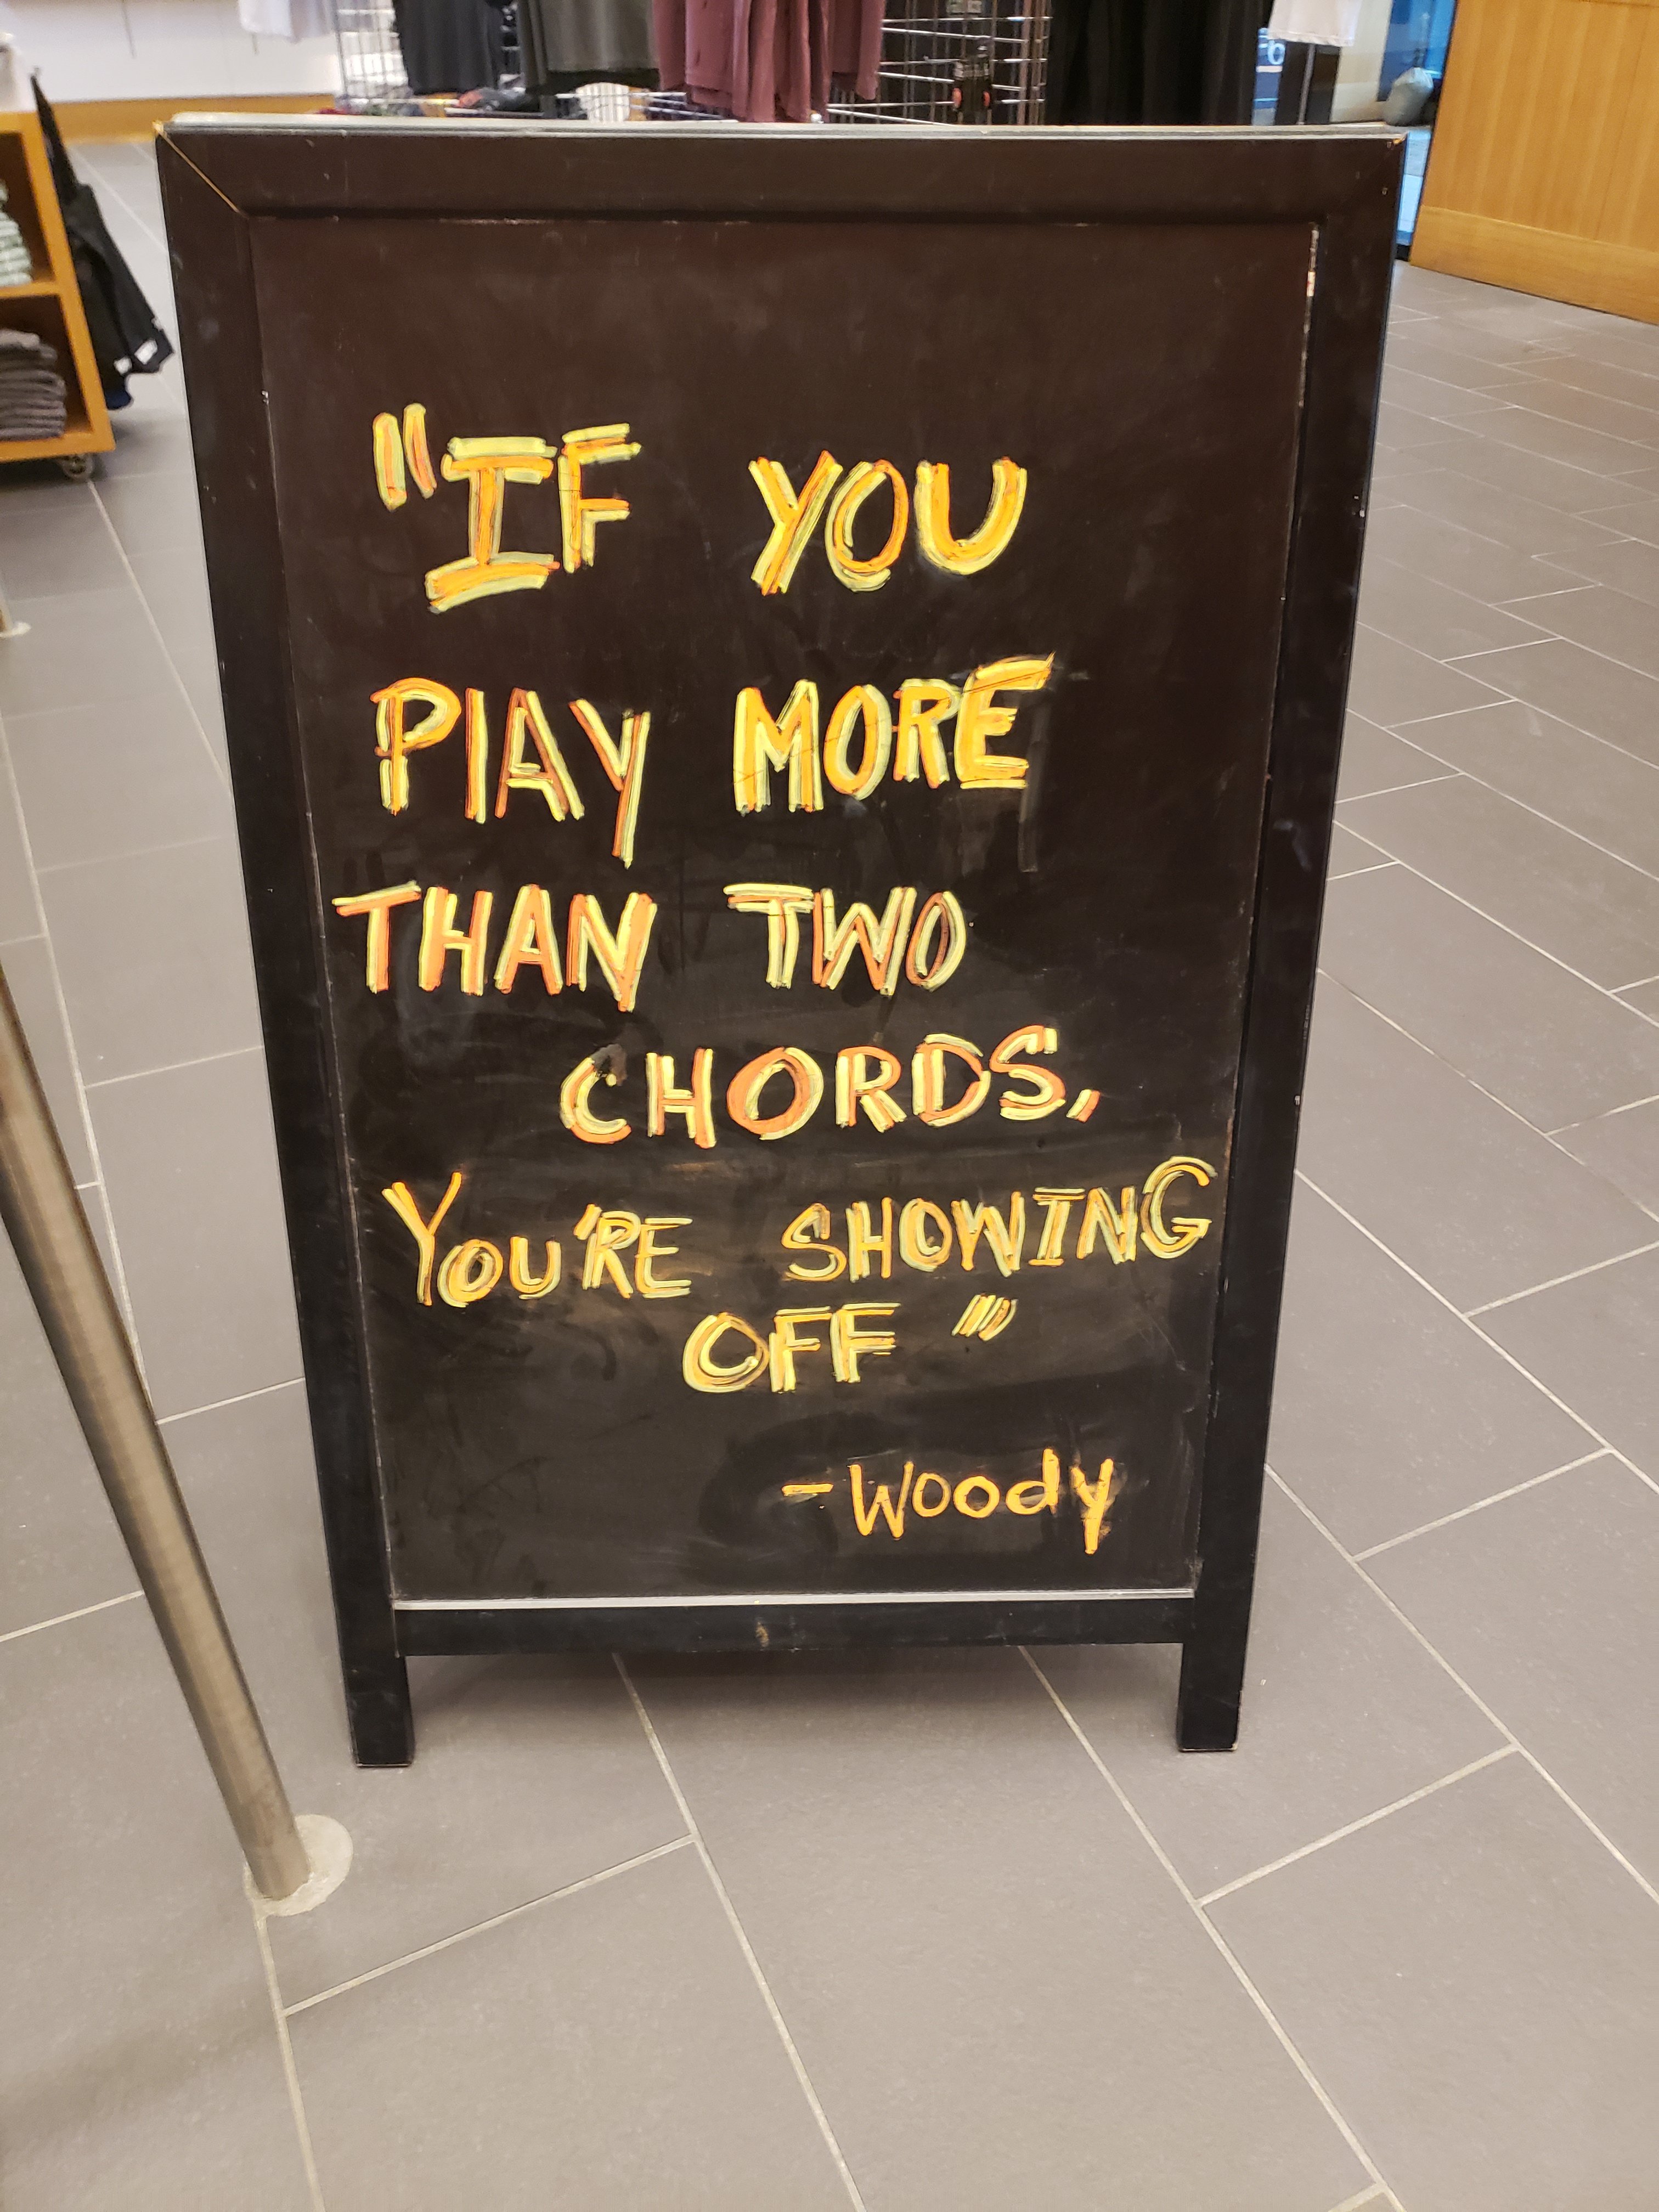 "IF YOU
PLAY MORE
THAN TWO
CHORDS,
YOU'RE SHOWING
OFF"
-Woody